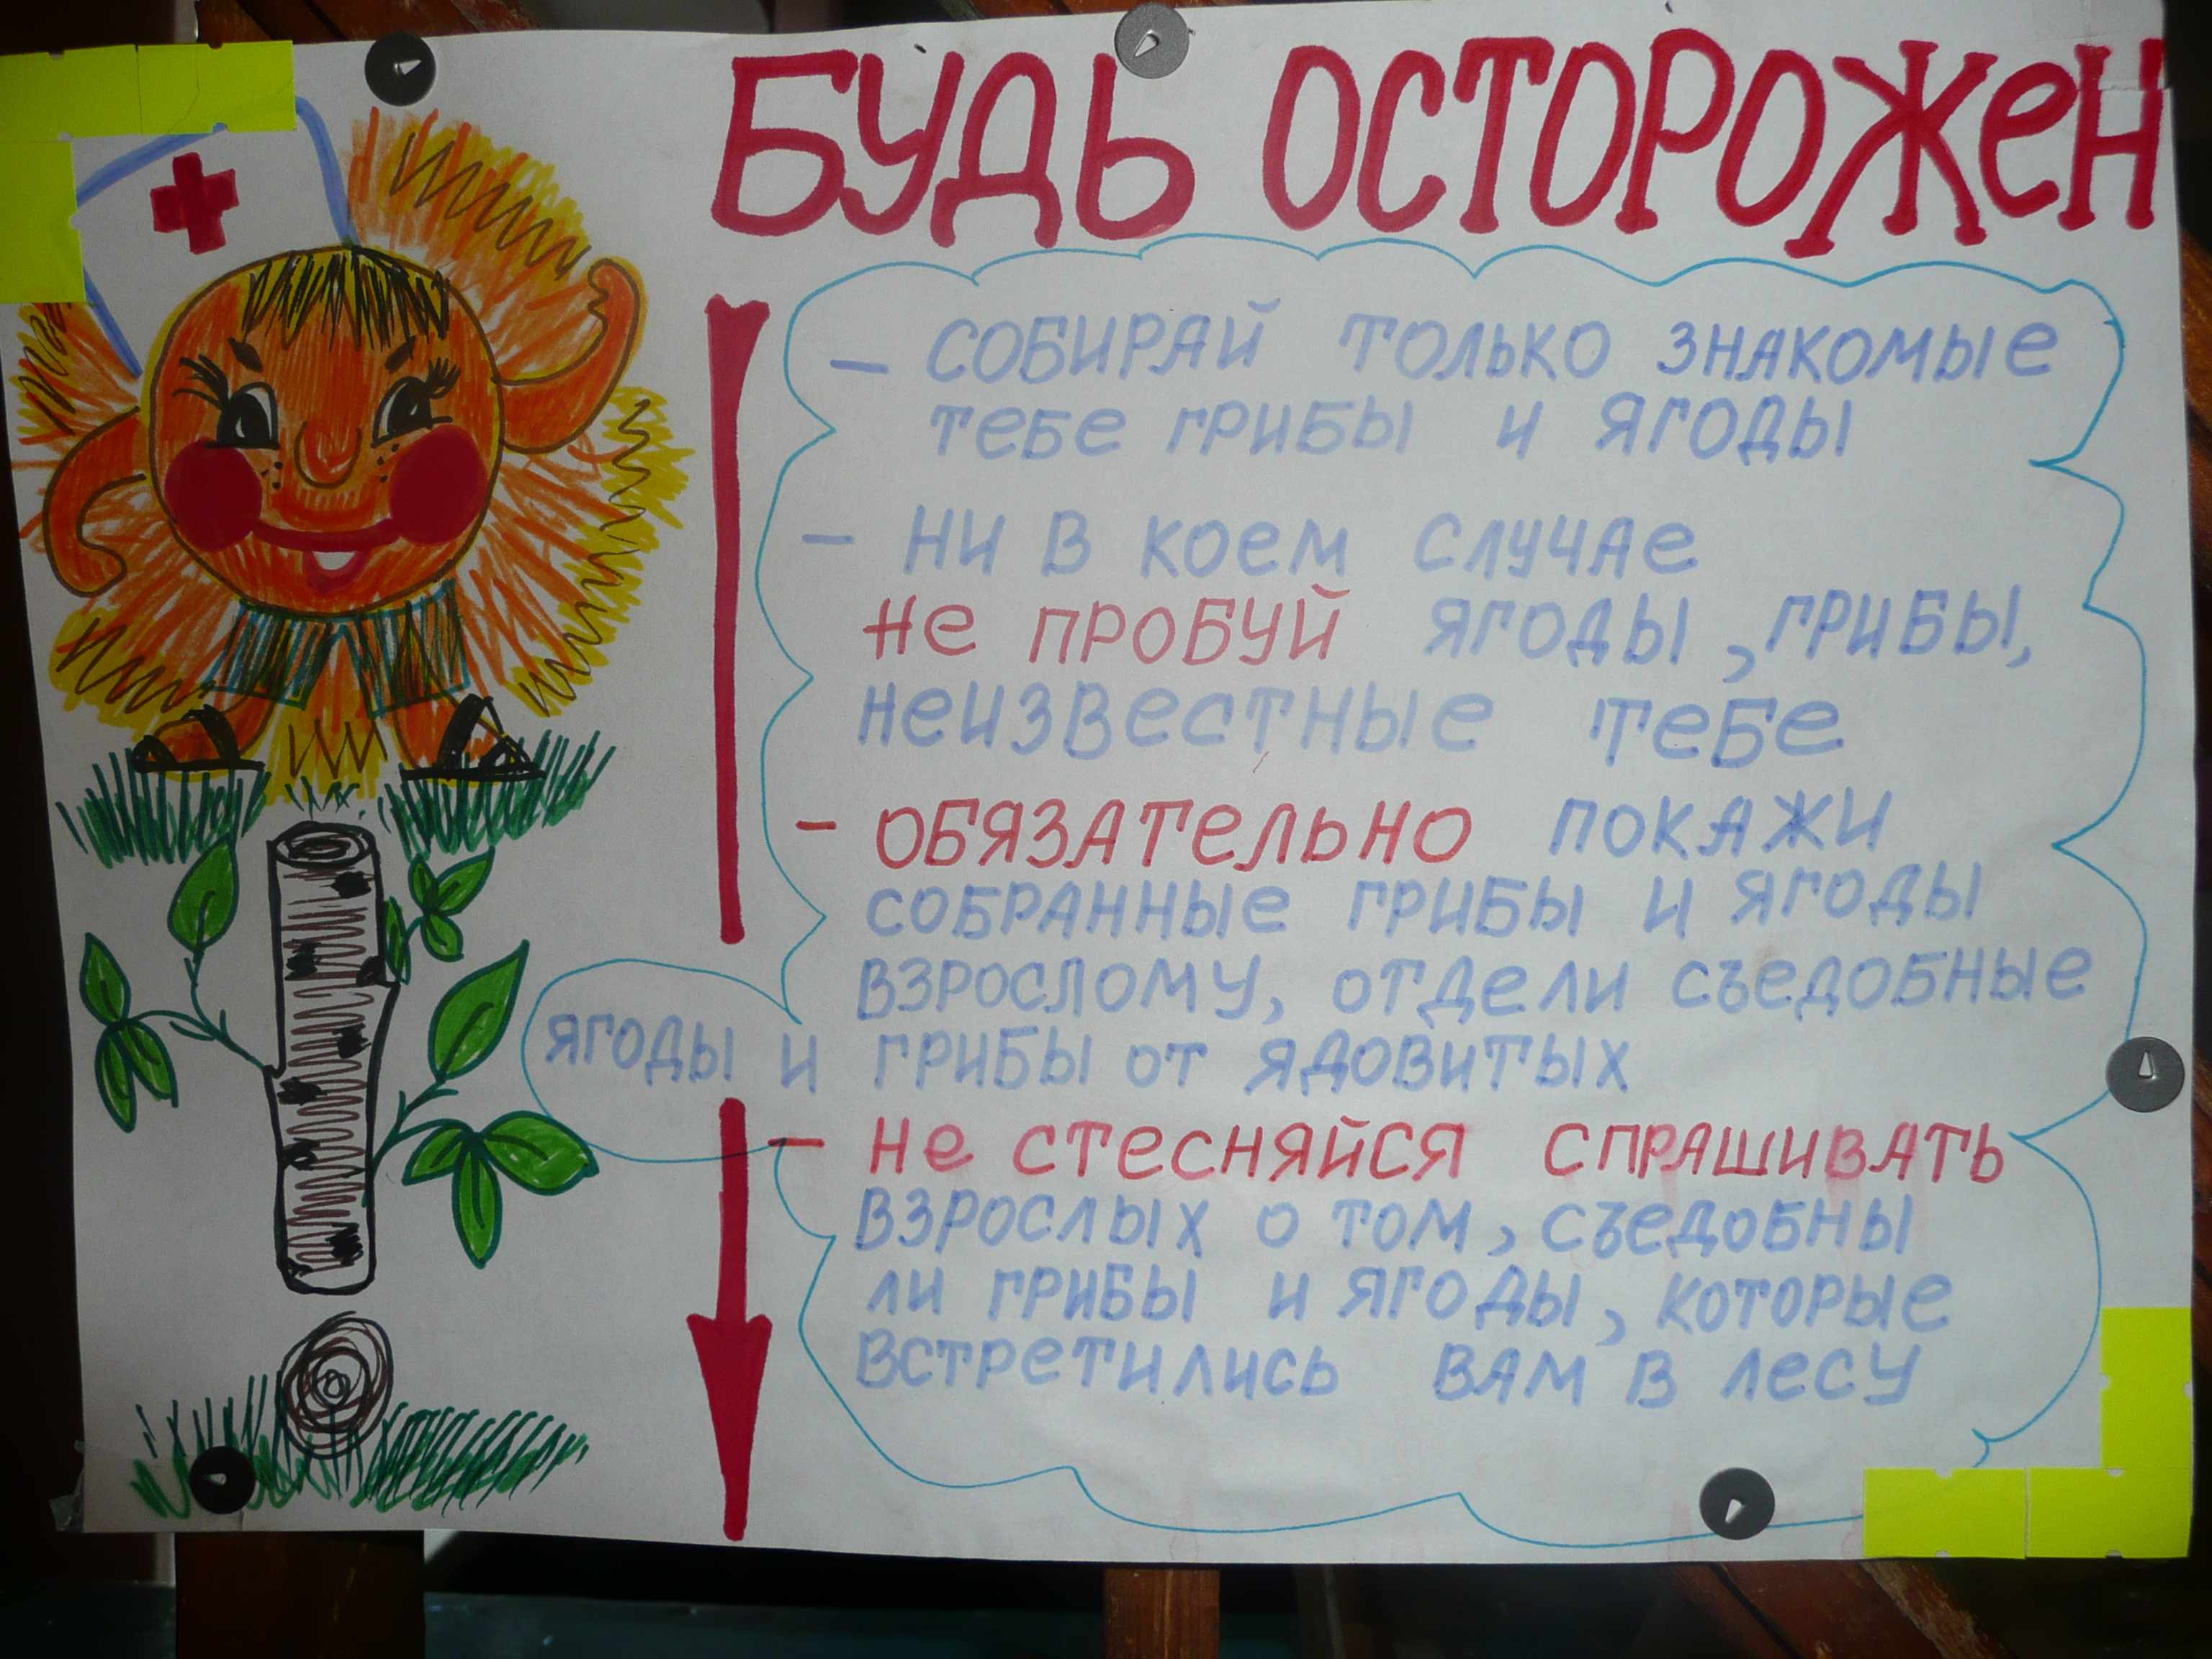 БУДЬ ОСТОРОЖЕН
- СОБИРАЙ ТОЛЬКО ЗНАКОМЫЕ
ТЕБЕ ГРИБЫ И ЯГОДЫ
- НИ В КОЕМ СЛУЧАЕ
НЕ ПРОБУЙ ЯГОДЫ, ГРИБЫ,
НЕИЗВЕСТНЫЕ ТЕБЕ
- ОБЯЗАТЕЛЬНО ПОКАЖИ
СОБРАННЫЕ ГРИБЫ И ЯГОДЫ
ВЗРОСЛОМУ, ОТДЕЛИ СЪЕДОБНЫЕ
ЯГОДЫ И ГРИБЫ ОТ ЯДОВИТЫХ
- НЕ СТЕСНЯЙСЯ СПРАШИВАТЬ
ВЗРОСЛЫХ О ТОМ, СЪЕДОБНЫ
ЛИ ГРИБЫ И ЯГОДЫ, КОТОРЫЕ
ВСТРЕТИЛИСЬ ВАМ В ЛЕСУ